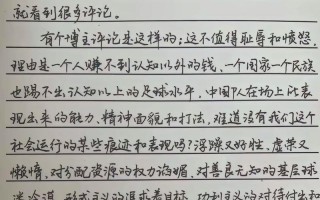 就看到很多评论。
有个博主评论是这样的：这不值得耻辱和愤怒，
理由是一个人赚不到认知以外的钱、一个国家一个民族
也踢不出认知以上的足球水平，中国队在场上所表
现出来的能力、精神面貌和打法，难道没有我们这个
社会运行的某些痕迹和表现吗？浮躁又好性，虚荣又
懒惰，对分配资源的权力谄媚，对善良无知的基层球
迷冷漠，形式主义的追求着目标，功利主义的对待付出和